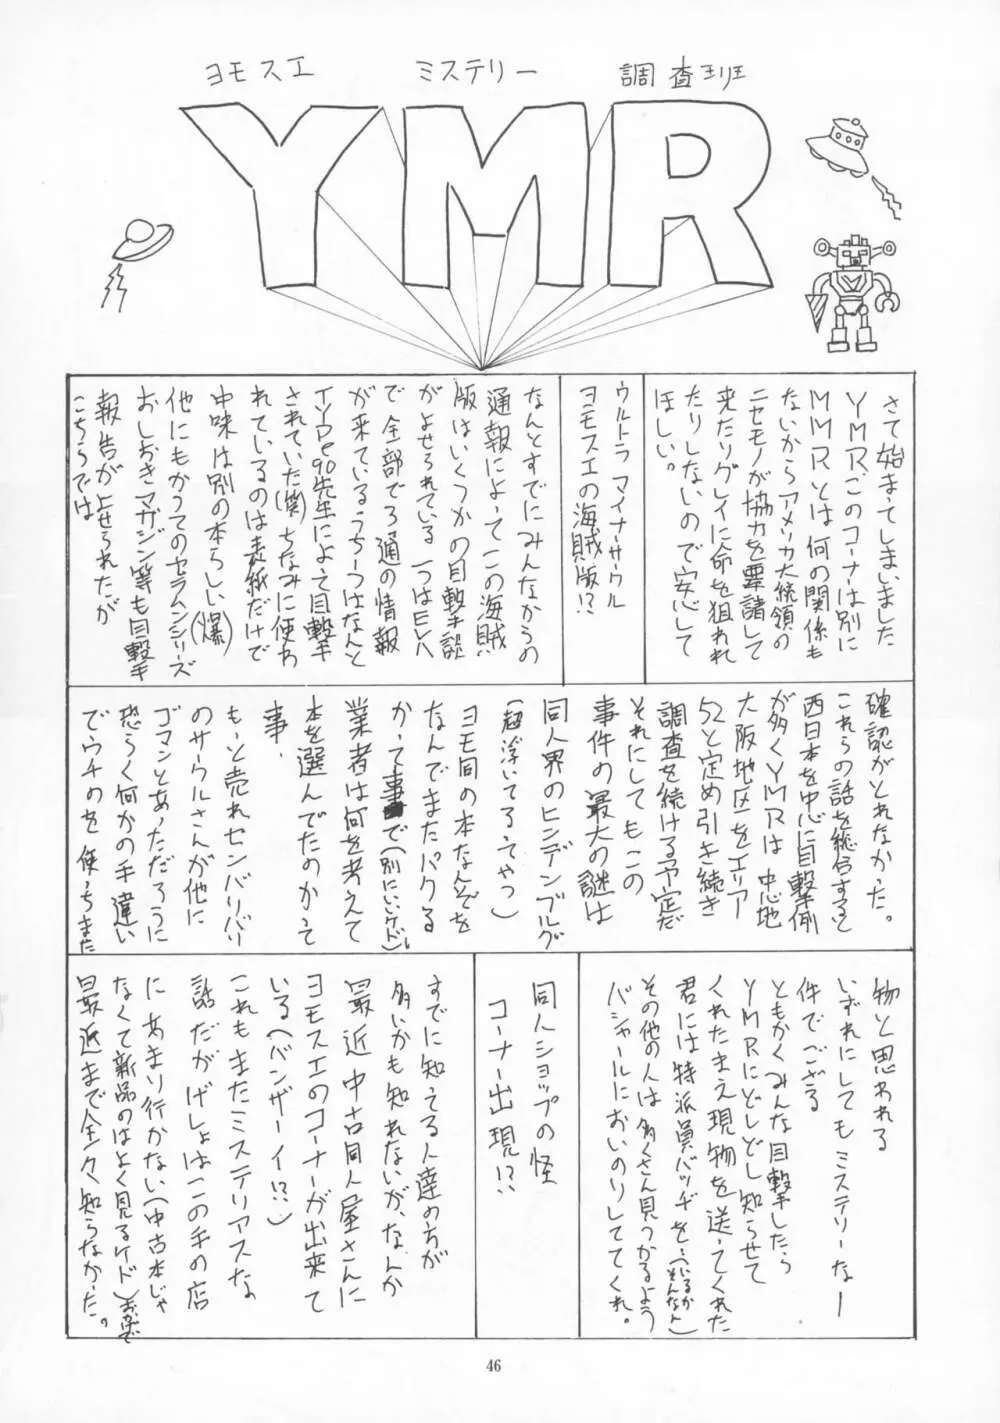 ヨモスエ ミステリー 調査班
YMR
さて始まってしまいました
YMR、このコーナーは別に
MMRとは何の関係も
ないからアメリカ大統領の
ニセモノが協力を要請して
来たりグレイに命を狙れれ
たりしないので安心して
ほしい。
ウルトラマイナーサークル
ヨモスエの海賊版!?
なんとすでにみんなからの
通報によってこの海賊
版はいくつかの目撃談
がよせられている 一つはEVA
で全部で3通の情報
が来ているうち一つはなんと
TYPE90先生によって目撃
されていた(笑)ちなみに使わ
れているのは表紙だけで
中味は別の本らしい(爆)
他にもかつてのセラムンシリーズ
おしおきマガジン等も目撃
報告がよせられたが
こちらでは
確認がとれなかった。
これらの話を総合すると
西日本を中心に目撃例
が多くYMRは中心地
大阪地区をエリア
52と定め引き続き
調査を続ける予定だ
それにしてもこの
事件の最大の謎は
同人界のヒンデンブルグ
(超浮いてるってやつ)
ヨモ同の本なんぞを
なんでまたパクる
かって事で(別にいいケド)、
業者は何を考えて
本を選んでたのかって
事、
もっと売れセンバリバリ
のサークルさんが他に
ゴマンとあっただろうに
恐らく何かの手違い
でウチのを使っちまた
物と思われる
いずれにしてもミステリーな
件でござる
ともかくみんな目撃したら
YMRにどしどし知らせて
くれたまえ現物を送ってくれた
君には特派員バッヂを…(いるかそんなん)
その他の人は多くさん見つかるよう
バシャールにおいのりしててくれ。
同人ショップの怪
コーナー出現!?
すでに知ってる人達の方が
多いかも知れないが、なんか
最近中古同人屋さんに
ヨモスエのコーナーが出来て
いる(バンザーイ!?)
これもまたミステリアスな
話だがげしょはこの手の店
にあまり行かない(中古本じゃ
なくて新品のはよく見るケド)おかげで
最近まで全く知らなかった。
46